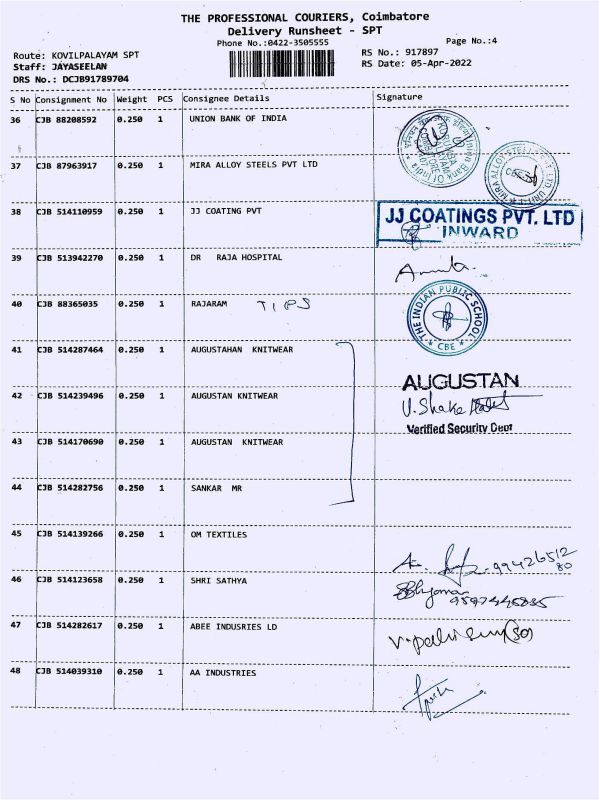 THE PROFESSIONAL COURIERS, Coimbatore
Delivery Runsheet - SPT
Phone No.:0422-3505555
Page No.:4
Route: KOVILPALAYAM SPT
RS No.: 917897
Staff: JAYASEELAN
RS Date: 05-Apr-2022
DRS No.: DCJB91789704
S No Consignment No Weight PCS Consignee Details Signature
36 CJB 88208592 0.250 1 UNION BANK OF INDIA
37 CJB 87963917 0.250 1 MIRA ALLOY STEELS PVT LTD
38 CJB 514110959 0.250 1 JJ COATING PVT
JJ COATINGS PVT. LTD
INWARD
39 CJB 513942270 0.250 1 DR RAJA HOSPITAL
40 CJB 88365035 0.250 1 RAJARAM TIPS
THE INDIAN PUBLIC SCHOOL
CBE
41 CJB 514287464 0.250 1 AUGUSTAHAN KNITWEAR
AUGUSTAN
42 CJB 514239496 0.250 1 AUGUSTAN KNITWEAR
Verified Security Dept
43 CJB 514170690 0.250 1 AUGUSTAN KNITWEAR
44 CJB 514282756 0.250 1 SANKAR MR
45 CJB 514139266 0.250 1 OM TEXTILES
9942651280
46 CJB 514123658 0.250 1 SHRI SATHYA
47 CJB 514282617 0.250 1 ABEE INDUSRIES LD
48 CJB 514039310 0.250 1 AA INDUSTRIES